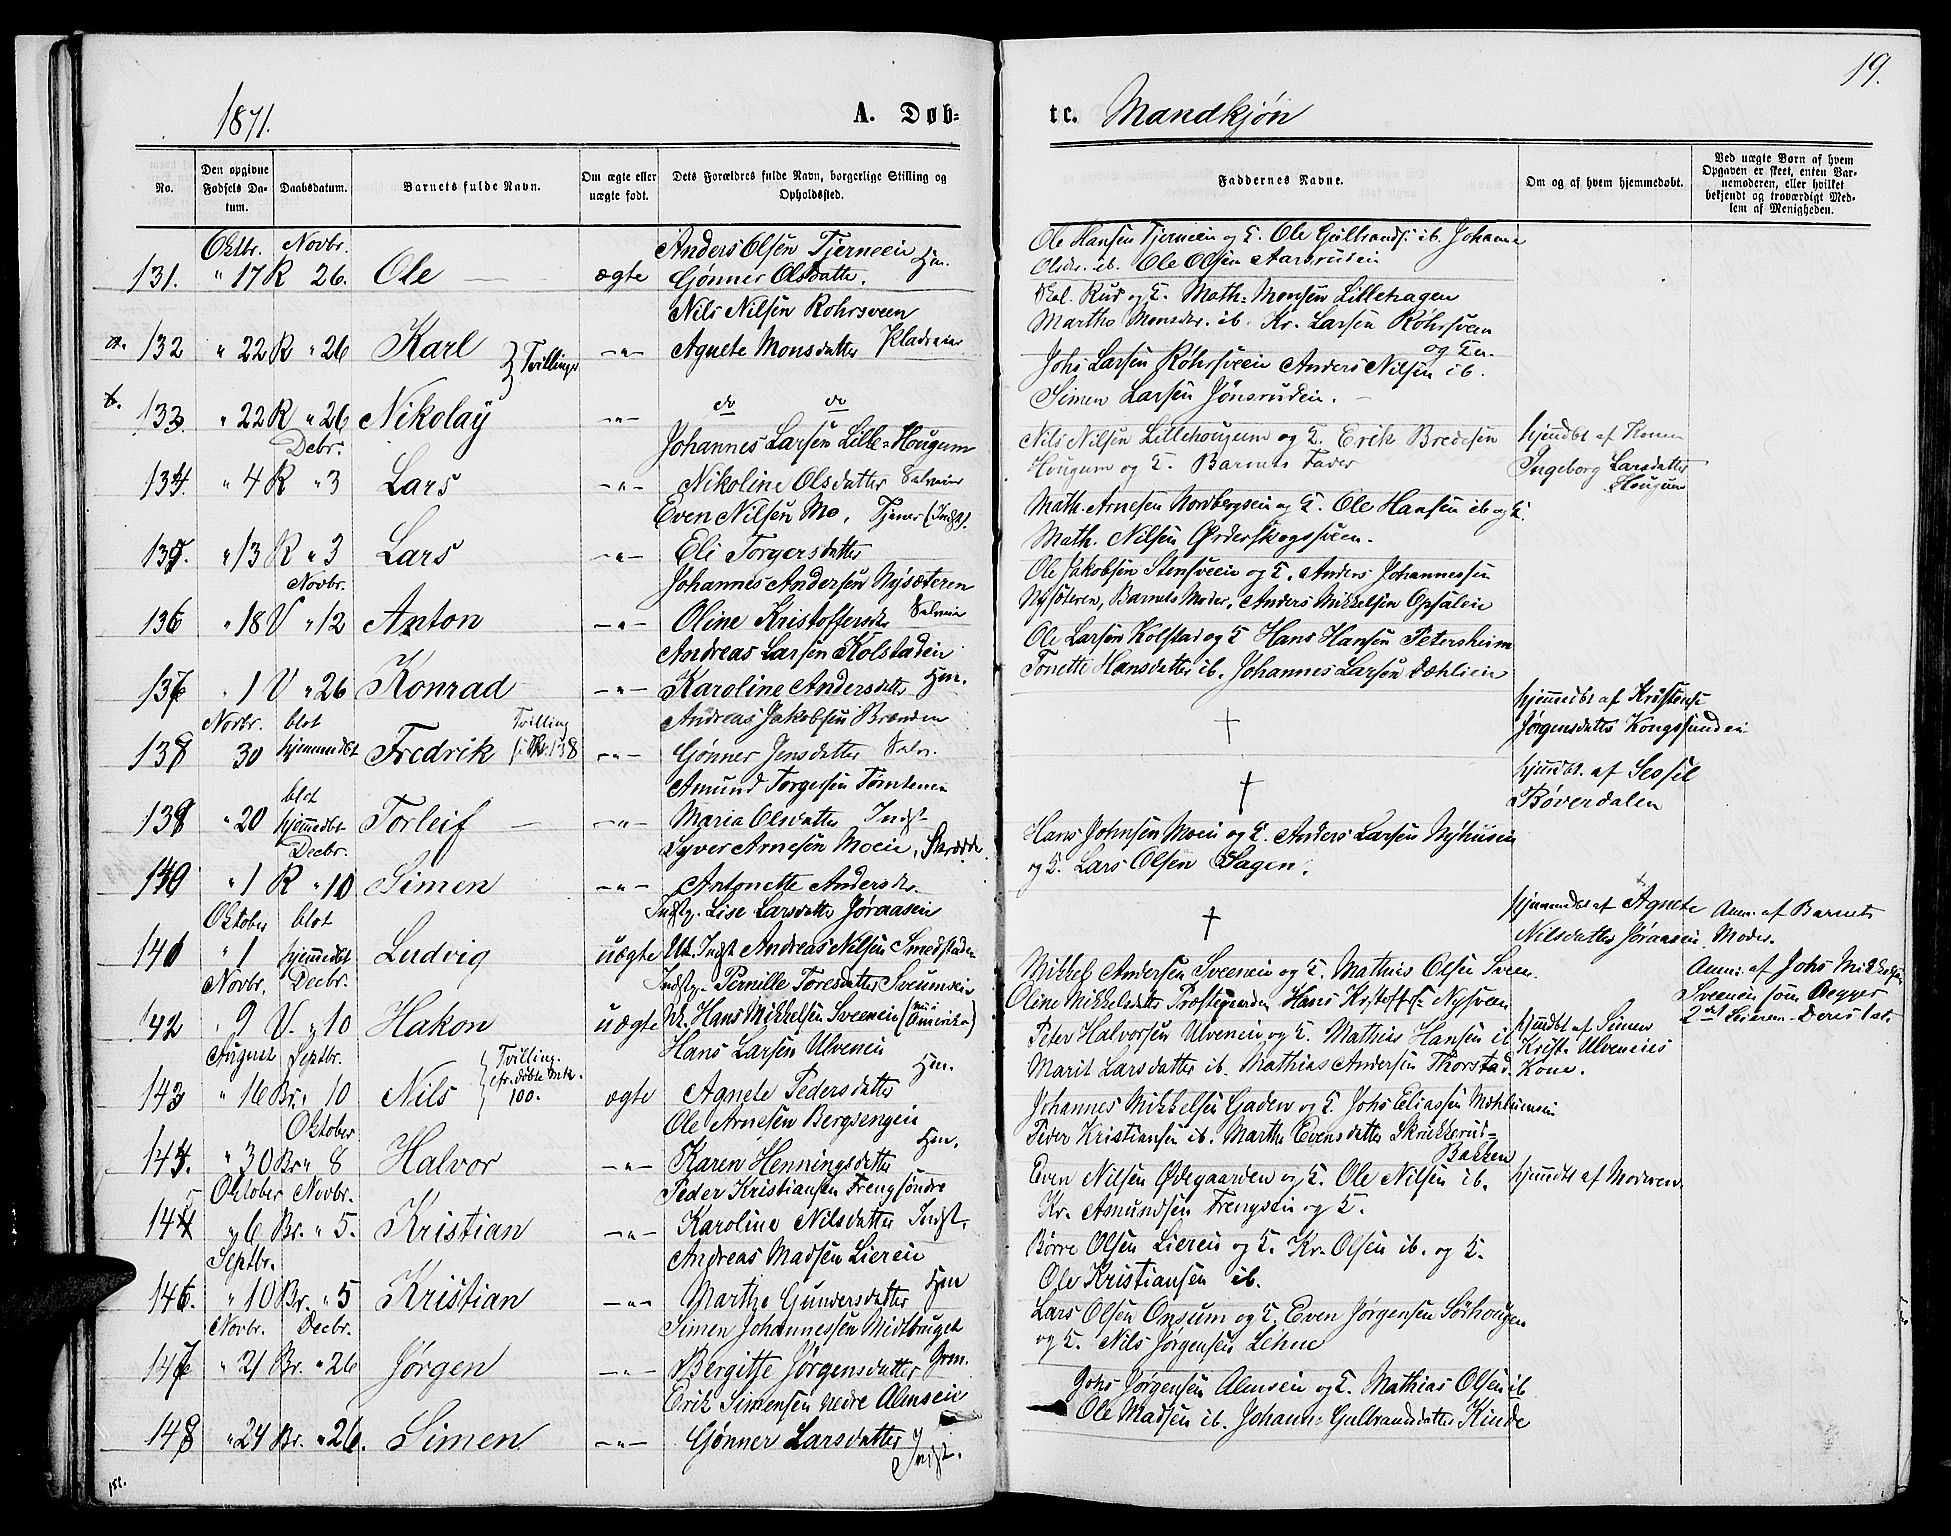 19.
1871. A. Døb= te. Mandkjøn
No.
Den opgivne Fødsels Datum.
Daabsdatum.
Barnets fulde Navn.
Om ægte eller uægte født.
Dets Forældres fulde Navn, borgerlige Stilling og Opholdssted.
Faddernes Navne.
Om og af hvem hjemmedøbt.
Ved uægte Børn af hvem Opgaven er skeet, enten Barnemoderen, eller hvilket bekjendt og troværdigt Medlem af Menigheden.
Oktbr. Novbr. Anders Olsen Tjerneein Hm.
131. " 17 R 26. Ole — ægte Gønner Olsdatter.
Ole Hansen Tjerneein og K. Ole Gulbrands. ib. Johanne
Olsdr. ib. Ole Olsen Aarsrudein
Nils Nilsen Rohrsveen
a. 132 " 22 R " 26 Karl } Tvillinger —"— Agnete Monsdatter Pladseier
Rud og K. Math= Monsen Lillehagen
Marthe Monsdr. ib. Kr. Larsen Røhrsveen
og K.
b. 133. " 22 R " 26 Nikolay —"— do do
Johs Larsen Røhrsveen Anders Nilsen ib.
Simen Larsen Jønsrudein. —
Debr. Johannes Larsen Lille=Hougum
134. " 4 R " 3 Lars —"— Nikoline Olsdatter Selveier
Nils Nilsen Lillehougum og K. Erik Bredesen
Hougum og K. Barnets Fader
hjemdbt af Konen
Ingeborg Larsdatter
Hougum
Even Nilsen Mo, Tjener (Indst).
135. " 13 R " 3 Lars —"— Eli Torgersdatter
Math. Arnesen Nordbergsein og K. Ole Hansen ib og K.
Math. Nilsen Ørderskogssveen.
Novbr. Johannes Andersen Nysæteren
136 " 18 V " 12 Anton —"— Oline Kristoffersdr Selveier
Ole Jakobsen Stensveein og K. Anders Johannessen
Nysæteren, Barnets Moder, Anders Mikkelsen Opsalein
Andreas Larsen Kolstadein
137 " 1 V " 26 Konrad —"— Karoline Andersdatter Hm.
Ole Larsen Kolstad og K Hans Hansen Petersheim
Tonette Hansdatter ib. Johannes Larsen Dæhlien
Novbr. blot Tvilling Andreas Jakobsen Brænden
138 30 hjemmedbt Fredrik 138 —"— Gønner Jensdatter Selv.
†
hjemmedbt af Kristense
Jørgensdatter Kongssundein
blot Amund Torgersen Tomteren
139 " 20 hjemmedbt Torleif — —"— Maria Olsdatter Indst
†
hjemdbt. af Sessil
Bøverdalen
Decbr. Syver Arnesen Moein, Skrædder.
140 " 1 R " 10 Simen —"— Antonette Andersdr.
Hans Johnsen Moein og K. Anders Larsen Nyhusein
og K. Lars Olsen Sagen.
Oktober blot Indstp. Lise Larsdatter Jøraasein
141 " 1 hjemmedbt Ludvig uægte Uk. Indst Andreas Nilsen Smedstaden
†
hjemmedbt af Agnete
Nilsdatter Jøraasein
Anm. af Barnets
Moder.
Novbr. Decbr. Indstp. Pernille Toresdatter Sveumsein
142 " 9 V. " 10 Hakon uægte Uk. Hans Mikkelsen Sveeneein (nu i Amerika)
Mikkel Andersen Sveeneein og K. Mathis Olsen Sveen
Oline Mikkelsdatter Præstegaarden Hans Kristoffers. Nysveen
Anm. af Johs Mikkelsen
Sveeneein som Begges
2det Leierm. Deres
August Septbr. Tvilling. Hans Larsen Ulvenein Hm.
143 " 16 Br. " 10 Nils { cfr. døbte 100. ægte Agnete Pedersdatter
Peter Halvorsen Ulvenein og K. Mathias Hansen ib
Marit Larsdatter ib. Mathias Andersen Thorstad.
hjemdbt af Simen
Krist. Ulveneies
Kone.
Oktober Ole Arnesen Bergsengein
144. " 30 Br " 8 Halvor —"— Karen Henningsdatter Hm.
Johannes Mikkelsen Gaden og K. Johs Eliassen
Peder Kristiansen ib. Marthe Evensdatter Skrukkerud=
Bakken
Oktober Novbr. Peder Kristiansen Frengsøndre
145 " 6 Br. " 5. Kristian —"— Karoline Nilsdatter Indst.
Even Nilsen Ødegaarden og K. Ole Nilsen ib.
Kr. Amundsen Frengsein og K.
hjemmdbt af Moderen
Septbr. Andreas Madsen Liereie
146. " 10 Br. " 5 Kristian —"— Marthe Gundersdatter Hm
Børre Olsen Lierein og K. Kr. Olsen ib. og K.
Ole Kristiansen ib.
Novbr. Decbr. Simen Johannessen Midtbruget
147 " 21 Br. " 26 Jørgen —"— Bergitte Jørgensdatter Grm.
Lars Olsen Onsum og K. Even Jørgensen Sørhougen
og K. Nils Jørgensen Lehne
Erik Simensen nedre Almseie
148 " 24 Br. " 26. Simen —"— Gønner Larsdatter Indst.
Johs Jørgensen Almsein og K. Mathias Olsen ib
Ole Madsen ib. Johann= Gulbrandsdatter Kinde